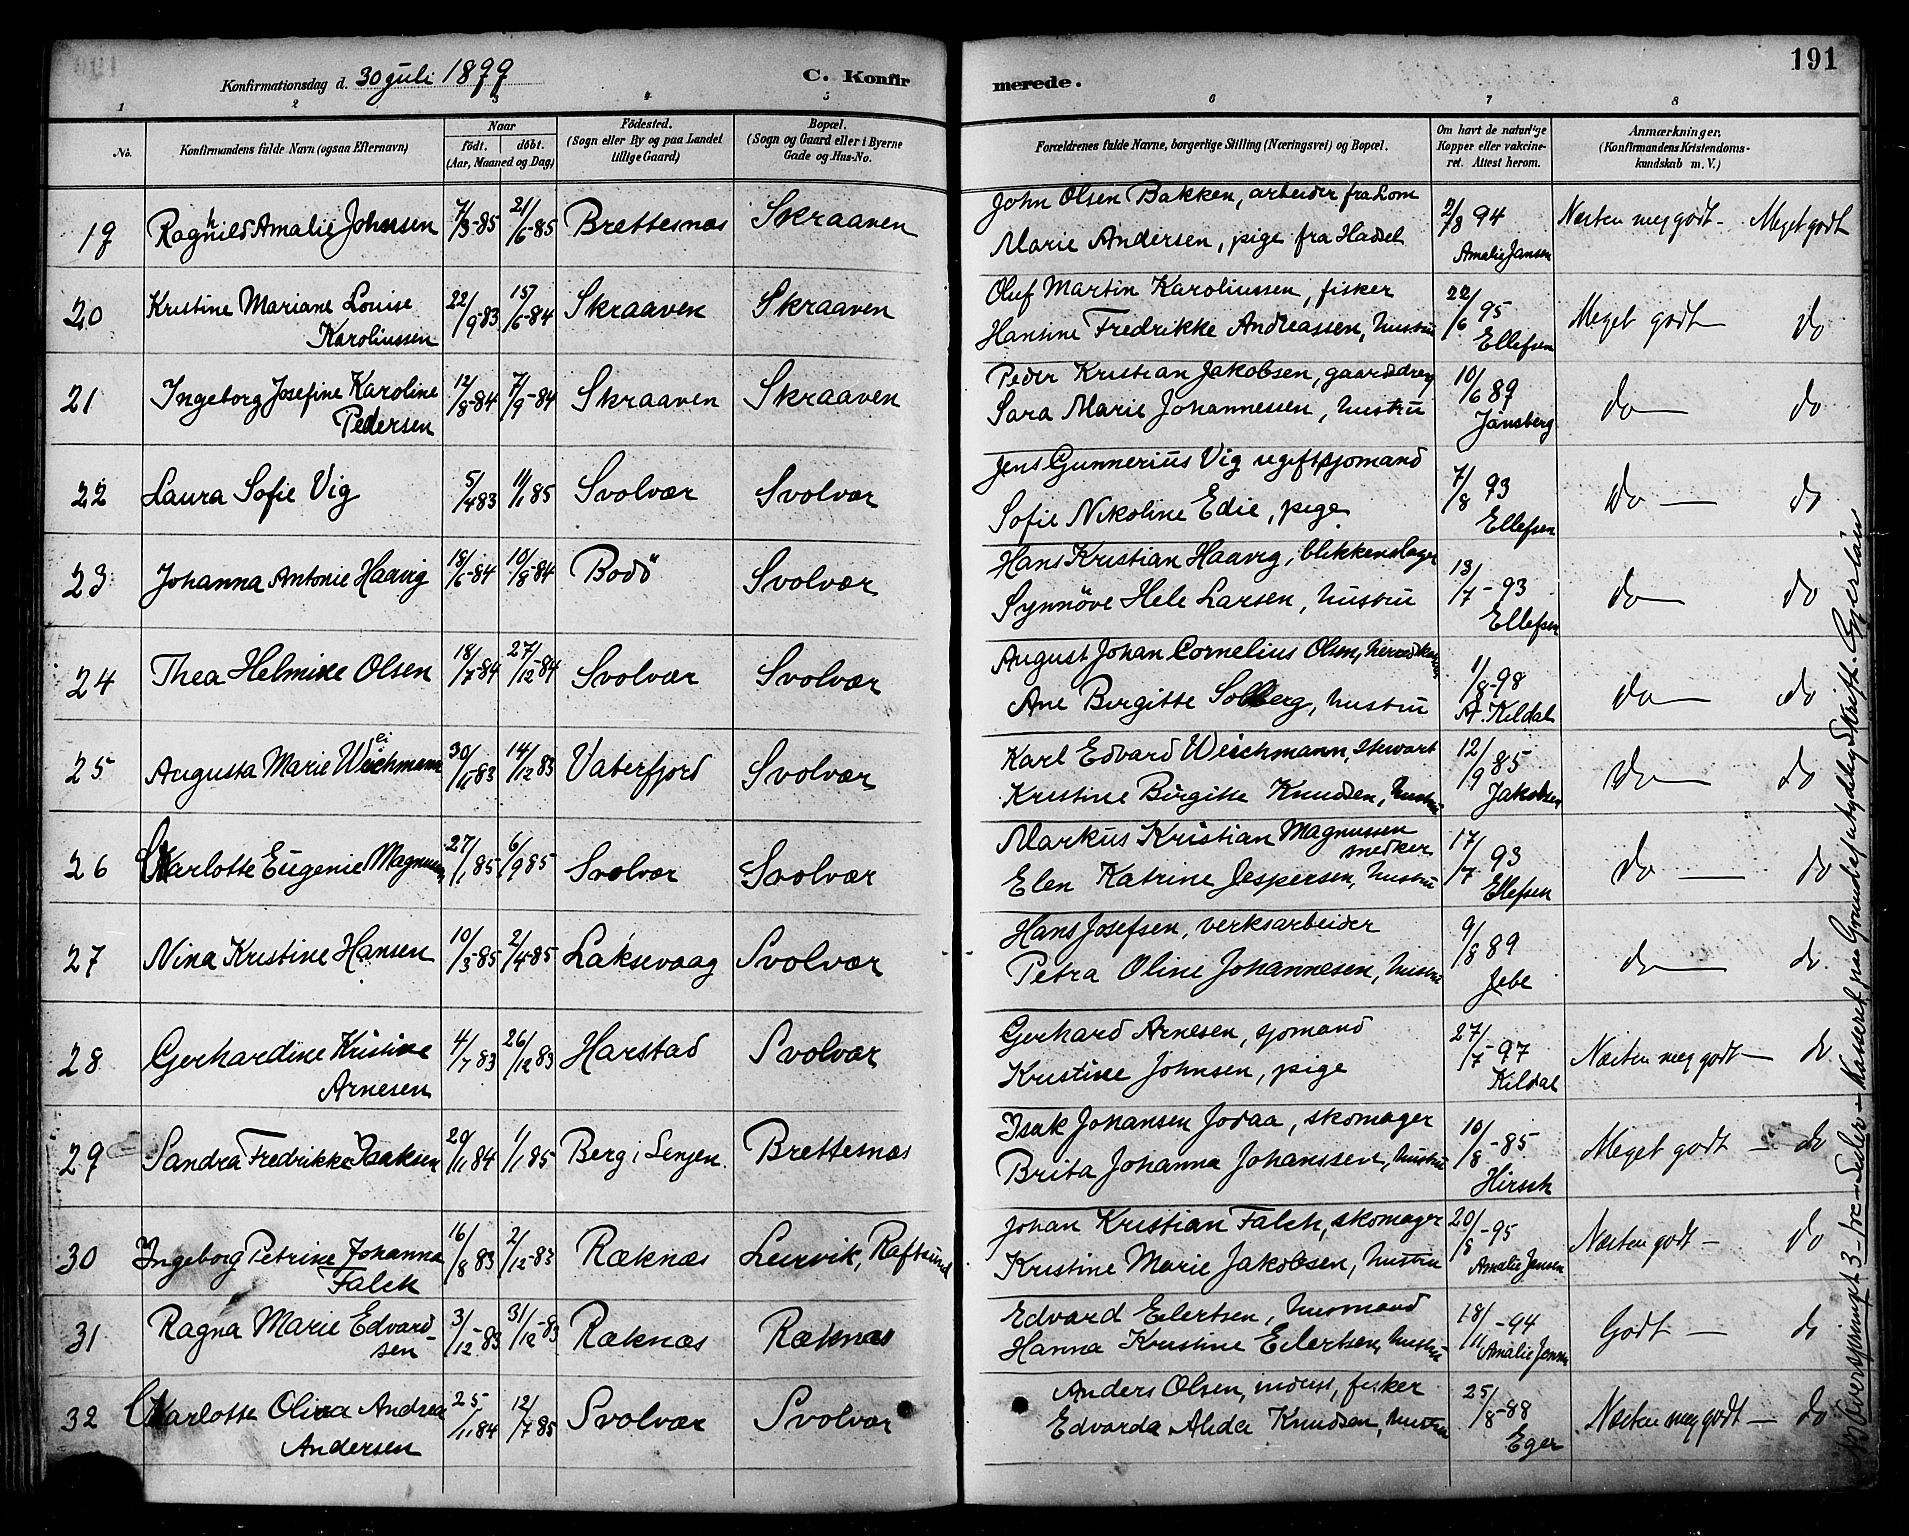 191
Konfirmationsdag d. 30 Juli 1899
C. Konfir
merede.
1 2 3 4 5 6 7 8
No.
Konfirmandens fulde Navn (ogsaa Efternavn)
Naar
födt. döbt.
(Aar, Maaned og Dag)
Födested.
(Sogn eller By og paa Landet
tillige Gaard)
Bopæl.
(Sogn og Gaard eller i Byerne
Gade og Hus-No.
Forældrenes fulde Navne, borgerlige Stilling (Næringsvei) og Bopæl.
Om havt de naturlige
Kopper eller vakcine-
ret. Attest herom.
Anmærkninger.
(Konfirmandens Kristendoms-
kundskab m. V.)
19 Ragnhild Amalie Johnsen 7/3-85 21/6-85 Brettesnæs Skraaven
John Olsen Bakken, arbeider fra Lom
Marie Andersen, pige fra Hadsel
2/8 94
Amalie Jansen
Næsten meg godt - Meget godt
20 Kristine Mariane Louise
Karoliussen
22/9-83 15/6-84 Skraaven Skraaven
Oluf Martin Karoliussen, fisker
Hansine Fredrikke Andreassen, hustru
22/6 95
Ellefsen
Meget godt - do
21 Ingeborg Josefine Karoline
Pedersen
12/8-84 7/9-84 Skraaven Skraaven
Peder Kristian Jakobsen, gaardbrug
Sara Marie Johannessen, hustru
10/6 89
Jånsberg
do - do
22 Laura Sofie Vig 5/4 83 11/1 85 Svolvær Svolvær
Jens Gunnerius Vig ugift sjömand
Sofie Nikoline Edie, pige
7/8 93
Ellefsen
Do - do
23 Johanna Antonie Haavig 18/6-84 10/8-84 Bodö Svolvær
Hans Kristian Haavig, blikkenslager
Synnöve Hele Larsen, hustru
13/7-93
Ellefsen
do - do
24 Thea Helmine Olsen 18/7-84 27/12-84 Svolvær Svolvær
August Johan Cornelius Olsen,
Ane Birgitte Solberg, hustru
1/8-98
A. Kildal
do - do
25 Augusta Marie Weichmann 30/11 83 14/12 83 Vaterfjord Svolvær
Karl Edvard Weichmann, stewart
Kristine Birgitte Knudsen, hustru
12/9 85
Jakobsen
Do - do
26 Charlotte Eugenie Magnussen 27/1 85 6/9 85 Svolvær Svolvær
Markus Kristian Magnussen
snedker
Elen Katrine Jespersen, hustru
17/7 93
Ellefsen
Do - do
27 Nina Kristine Hansen 10/3-85 2/4-85 Laksevaag Svolvær
Hans Josefsen, verksarbeider
Petra Oline Johannesen, hustru
9/8 89
Jebe
do - do
28 Gerhardine Kristine
Arnesen
4/7 83 26/12 83 Harstad Svolvær
Gerhard Arnesen, sjömand
Kristine Johnsen, pige
27/7-97
Kildal
Næsten meg godt - do
29 Sandra Fredrikke Isaksen 20/11 84 1/1 85 Berg i Senjen. Brettesnæs
Isak Johansen Jodaa, skomager
Brita Johanna Johanssen, hustru
10/8-85
Hirsch
Meget godt - do
30 Ingeborg Petrine Johanna
Falck
16/8 83 2/12-83 Ræknæs Lurvik, Raftsund
Johan Kristian Falck, skomager
Kristine Marie Jakobsen, hustru
20/8-95
Amalie Jansen
Næsten godt - do
31 Ragna Marie Edvard-
sen
3/12-83 31/12-83 Ræknæs Ræknæs
Edvard Eilertsen, husmand
Hanna Kristine Eilertsen, hustru
18/11-94
Amalie Jansen
Godt - do
32 Charlotte Olina Andrea
Andersen
25/11 84 12/7 85 Svolvær Svolvær
Anders Olsen, inderst, fisker
Edvarda Alida Knudsen, hustru
25/8-88
Eger
Næsten meg godt - do
NB Oversprunget 3 - tre - Sider - Kasseret paa Grund af utydelig Skrift.